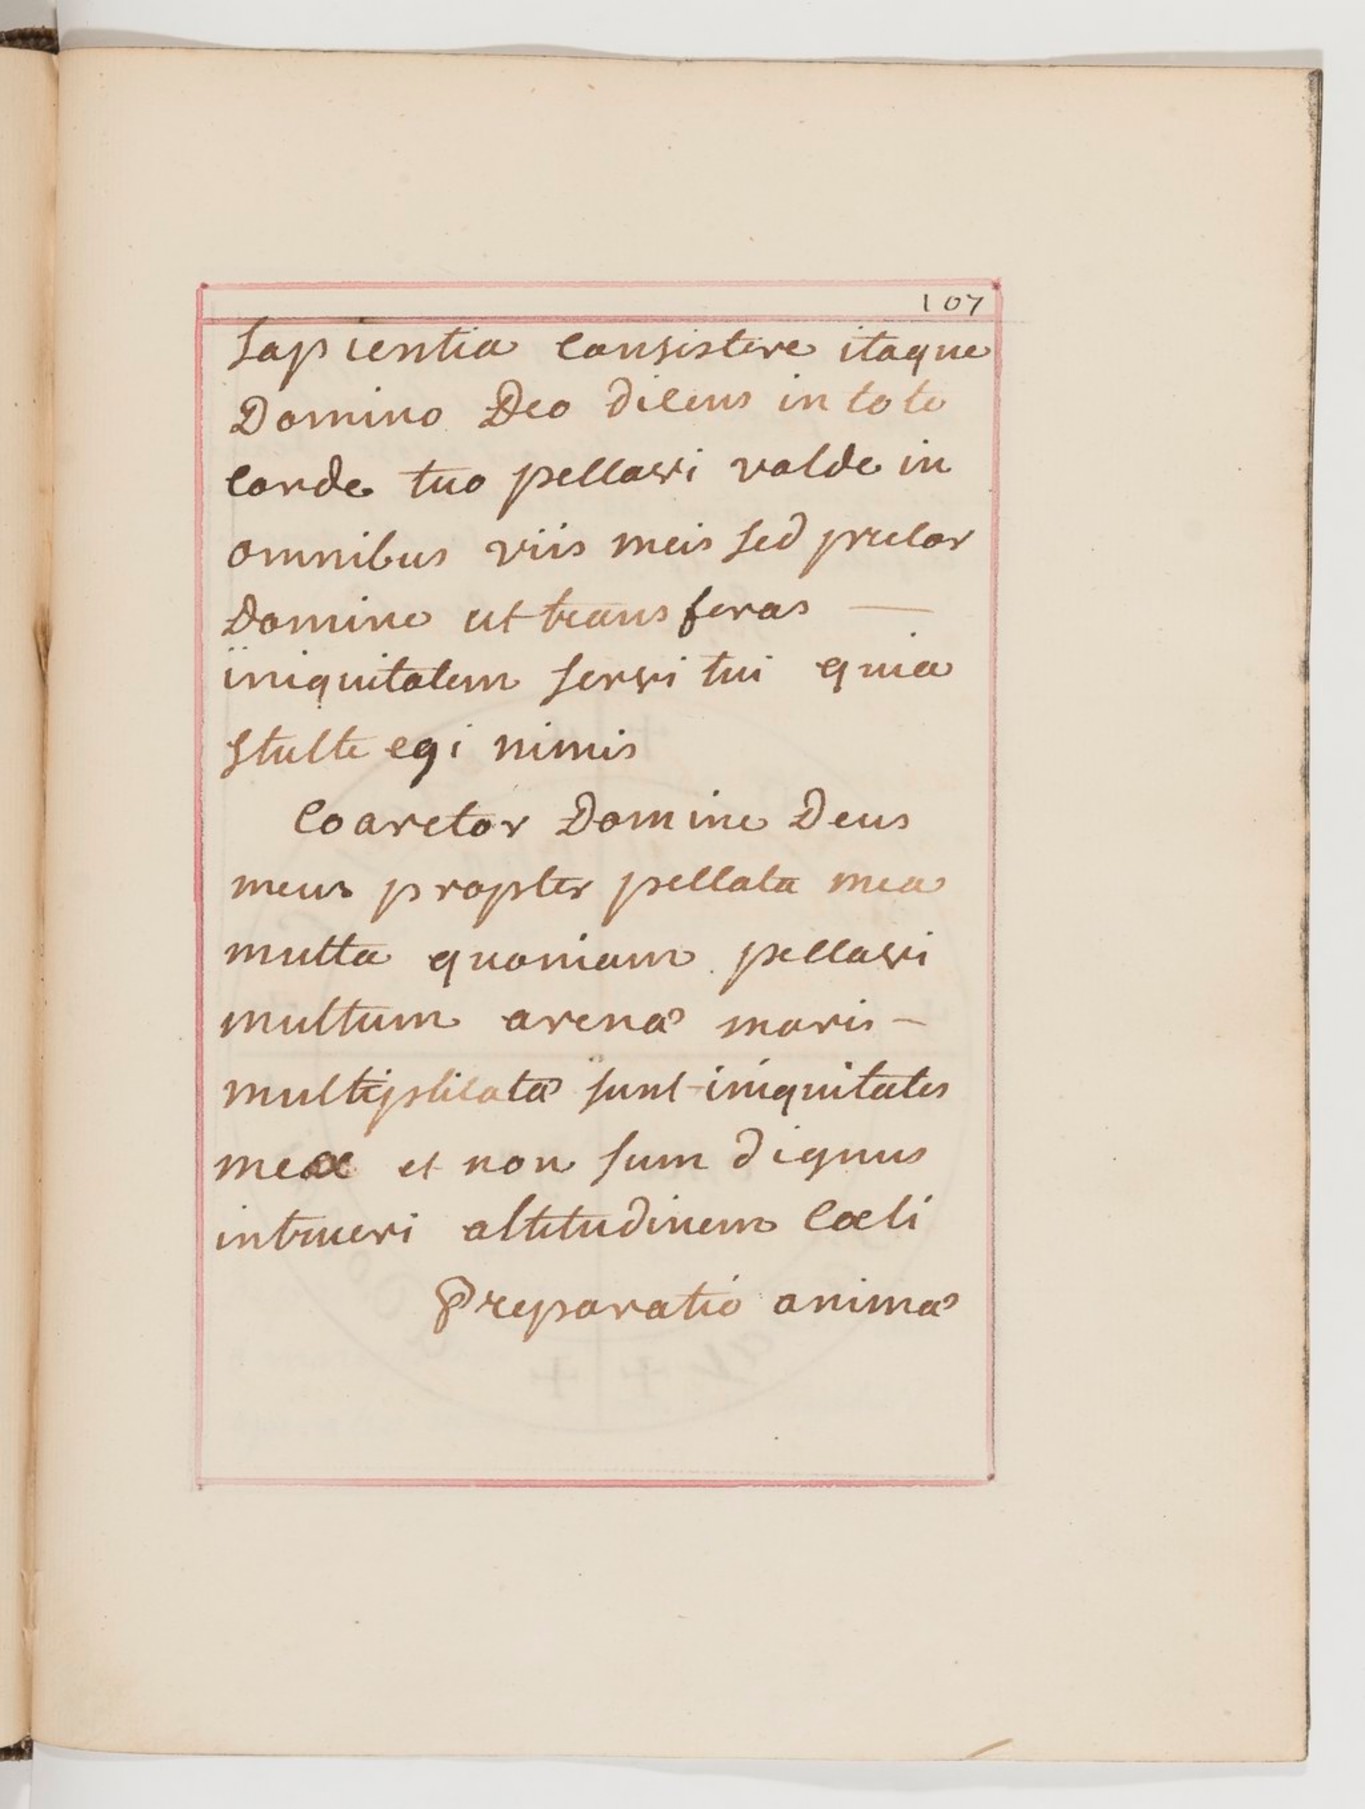 107
Sapientia consistere itaque
Domino Deo dicens in toto
corde tuo peccavi valde in
omnibus viis meis sed precor
Domine ut transferas —
iniquitatem servi tui quia
stulte egi nimis
Coarctor Domine Deus
meus propter peccata mea
multa quoniam peccavi
multum arenæ maris –
multiplicatæ sunt iniquitates
meæ et non sum dignus
intrueri altitudinem Cœli
Preparatio animæ